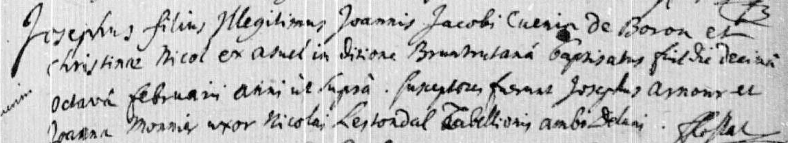 Josephus filius Illegitimus Joannis Jacobi Cuenin de Boron et
Christinæ Nicol ex asuel in ditione Bruntrutanâ baptisatus fuit die decimâ
octavâ februarii anni ut suprâ. susceptores fuerunt Josephus arnour et
Joanna Monnier uxor Nicolai Lestondal Tabellionis ambi Delani.